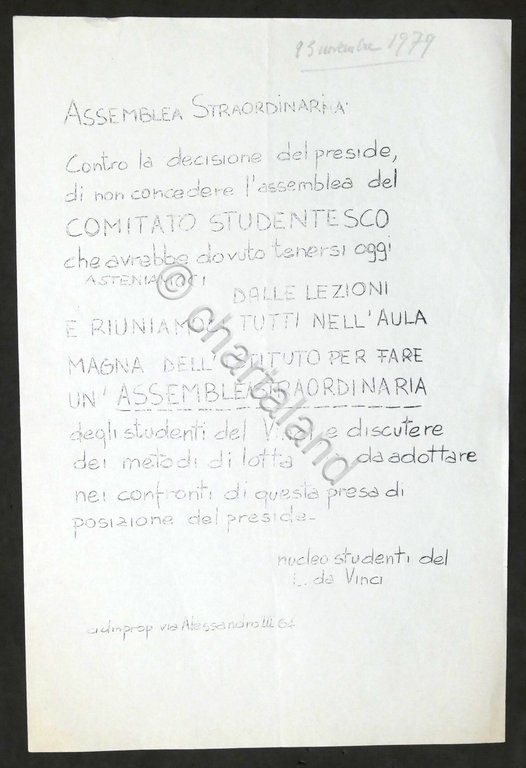 13 novembre 1979
ASSEMBLEA STRAORDINARIA
Contro la decisione del preside,
di non concedere l'assemblea del
COMITATO STUDENTESCO
che avrebbe dovuto tenersi oggi
ASTENIAMOCI DALLE LEZIONI
E RIUNIAMOCI TUTTI NELL'AULA
MAGNA DELL'ISTITUTO PER FARE
UN'ASSEMBLEA STRAORDINARIA
degli studenti del Vinci e discutere
dei metodi di lotta da adottare
nei confronti di questa presa di
posizione del preside-
nucleo studenti del
L. da Vinci
via Alessandro III 61
© chartaland